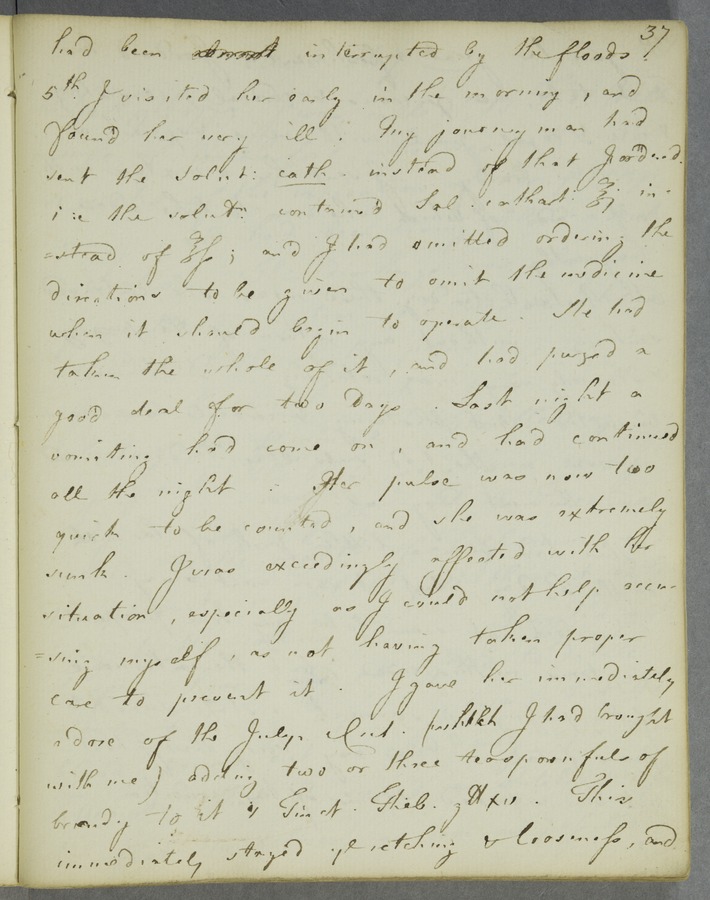 37
had been almost interrupted by the floods.
5th. I visited her early in the morning, and
found her very ill. My journeyman had
sent the solut: cath. instead of that I ordered.
i:e the solutn: contained Sal. cathart. ℥j in-
=stead of ℥ſs; and I had omitted ordering the
directions to be given to omit the medicine
when it should begin to operate. She had
taken the whole of it, and had purged a
good deal for two Days. Last night a
vomiting had come on, and had continued
all the night. Her pulse was now too
quick to be counted, and she was extremely
sunk. I was exceedingly affected with her
situation, especially as I could not help accu-
=sing myself, as not having taken proper
care to prevent it. I gave her immediately
a dose of the Julep (which I had brought
with me) adding two or three teaspoonfuls of
brandy to it & Tinct. Theb. gtt xv. This
immediately stayed ye retching & looseness, and